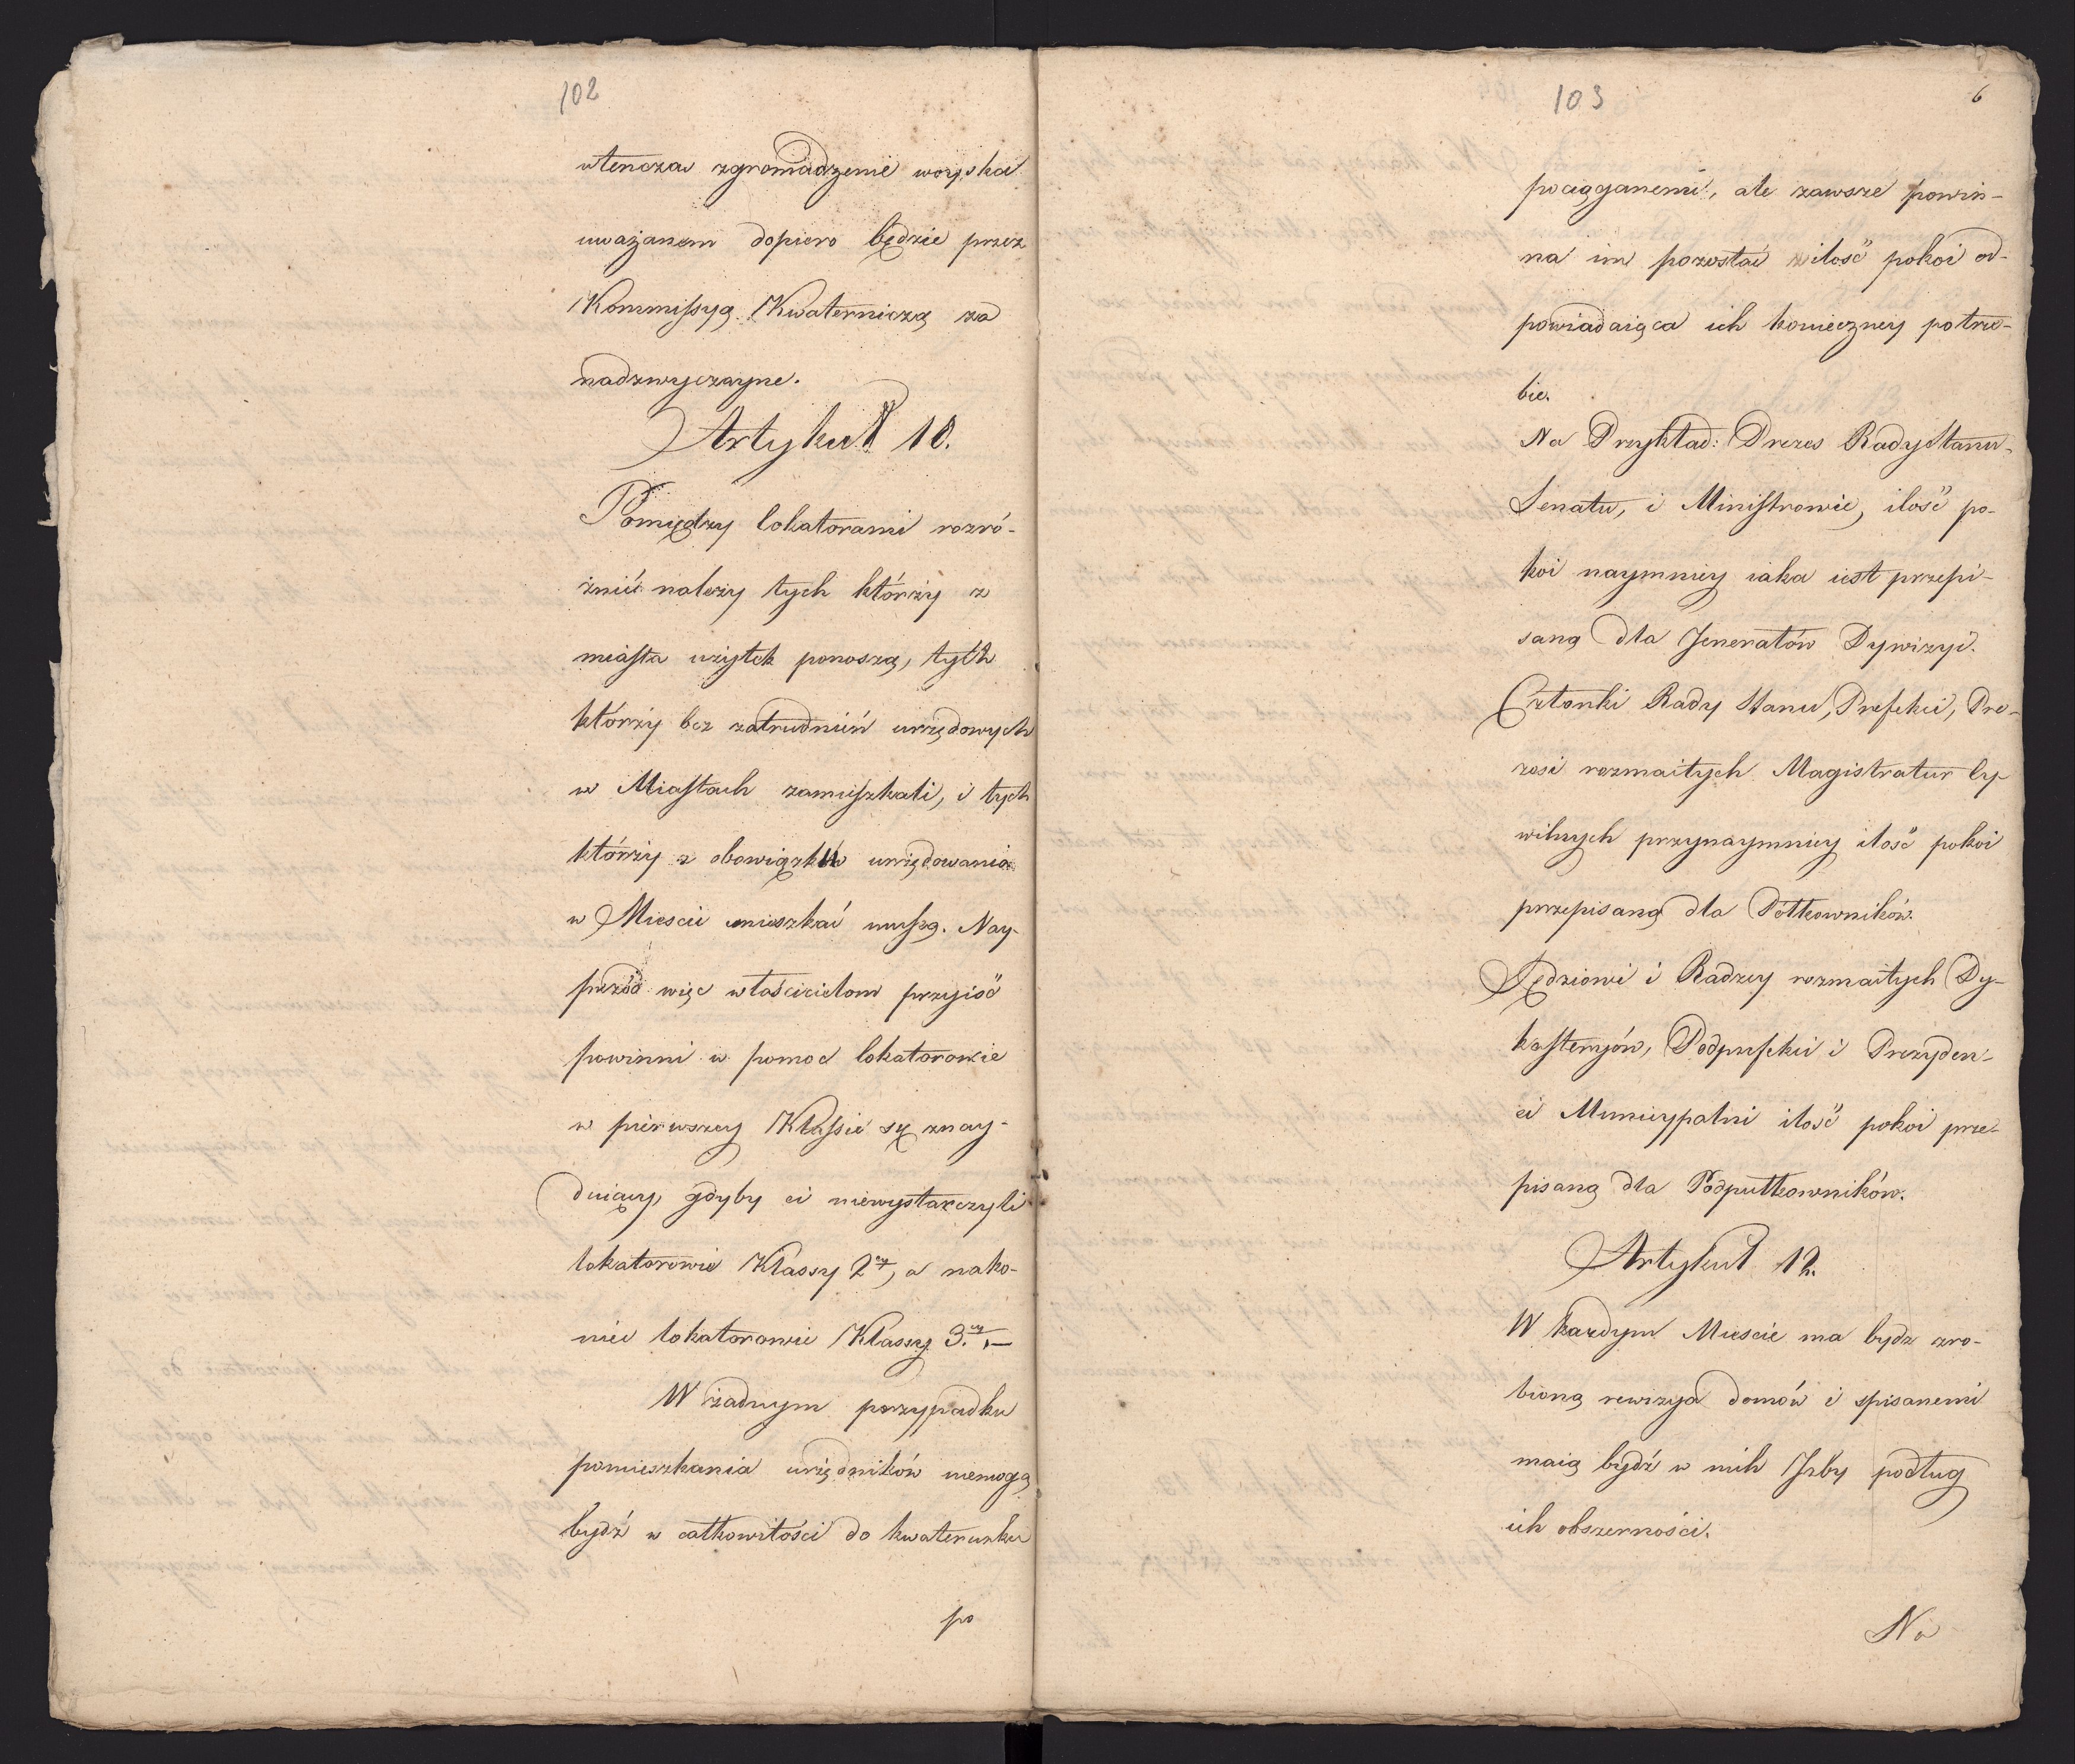 102
wtenczas zgromadzenie woyska
uważanem dopiero będzie przez
Kommissyą Kwaterniczą za
nadzwyczayne.
Artykuł 10.
Pomiędzy lokatorami rozró-
żnić należy tych którzy z
miasta użytek ponoszą, tych
którzy bez zatrudnień urzędowych
w Miastach zamieszkali, i tych
którzy z obowiązku urzędowania
w Mieście mieszkać muszą. Nay-
przód więc właścicielom przyiść
powinni w pomoc lokatorowie
w pierwszey Klassie sę znay-
duiący, gdyby ci niewystarczyli
lokatorowie Klassy 2ey, a nako-
niec lokatorowie Klassy 3.ey. —
W żadnym przypadku
pomieszkania urzędników niemogą
bydź w całkowitości do kwaterunku
po
103
6
pociąganemi, ale zawsze powin-
na im pozostać ilość pokoi od-
powiadaiąca ich konieczney potrze-
bie.
Na Przykład: Prezes Rady Stanu,
Senatu, i Ministrowie, ilość po-
koi naymniey iaka iest przepi-
saną dla Jenerałów Dywizyi.
Członki Rady Stanu, Prefekci, Pre-
zesi rozmaitych Magistratur Cy-
wilnych przynaymniey ilość pokoi
przepisaną dla Półkowników.
Sędziowi i Radzcy rozmaitych Dy-
kasteryów, Podprefekci i Prezyden-
ci Municypalni ilość pokoi prze-
pisaną dla Podpułkowników.
Artykuł 12.
W każdym Mieście ma bydz zro-
bioną rewizya domów i spisanemi
maią bydź w nich Jzby podług
ich obszerności.
Na